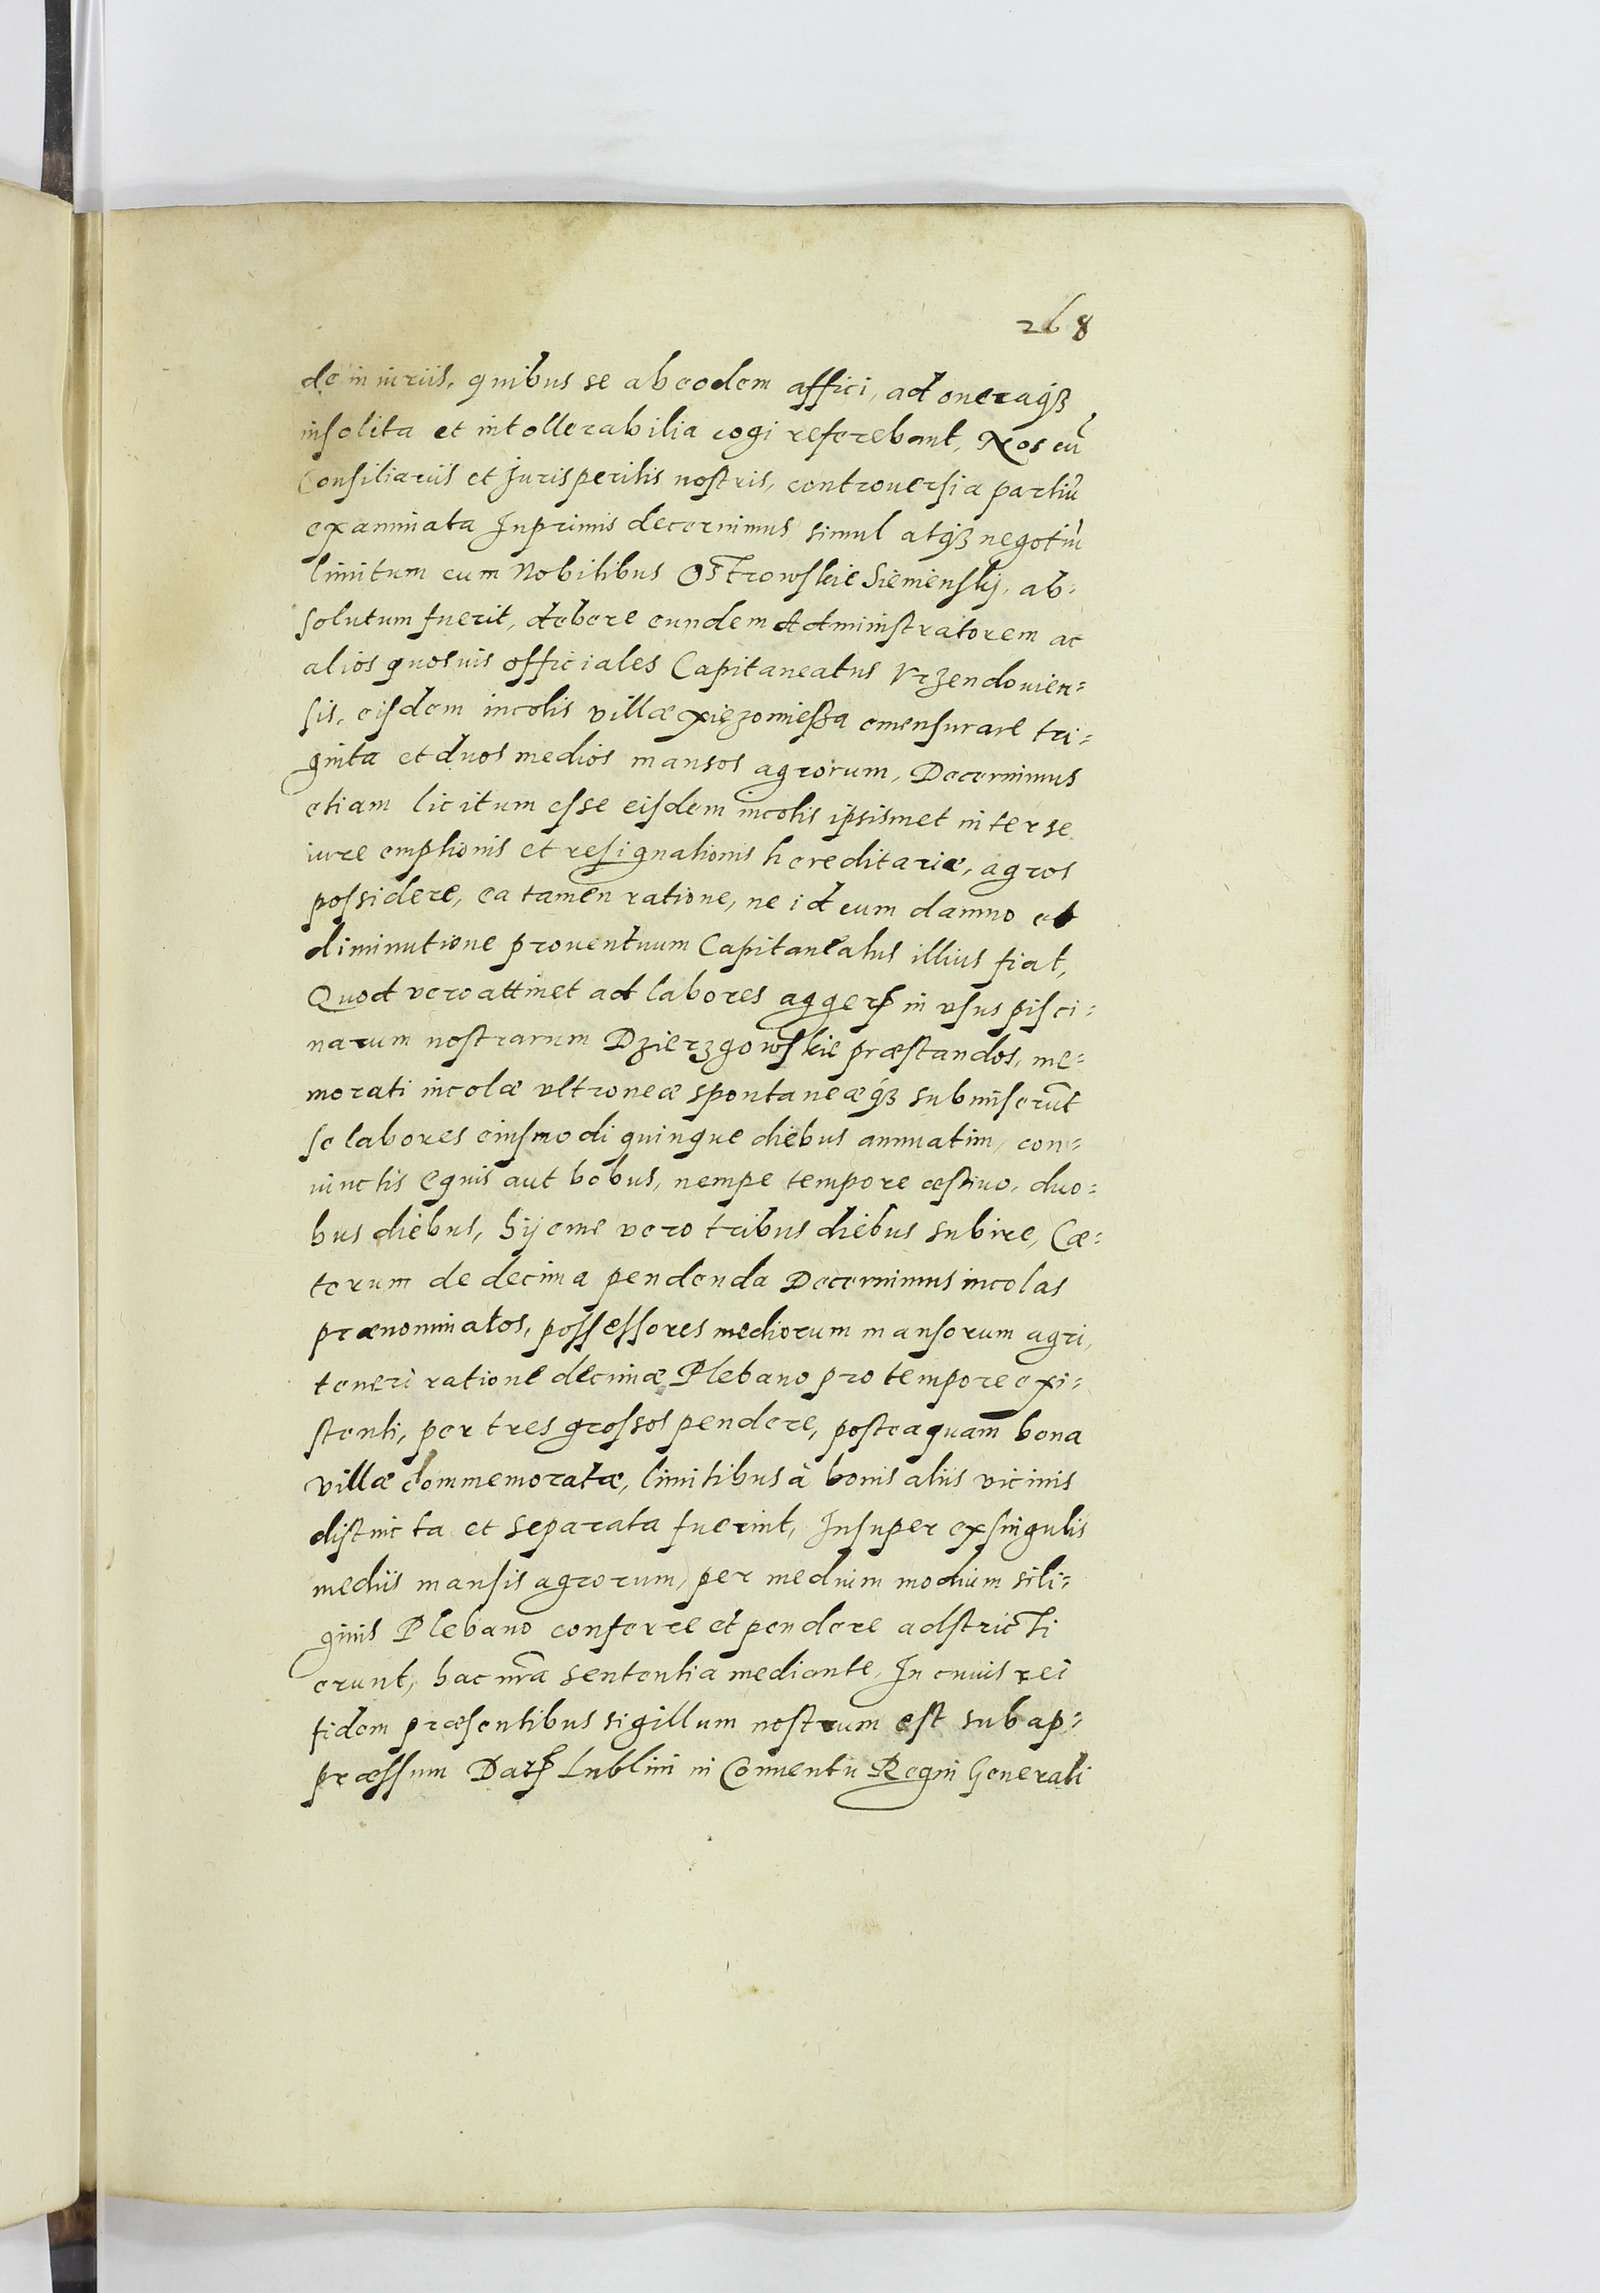 268
de iniuriis, quibus se ab eodem affici, ad oneraqꝫ
insolita et intollerabilia cogi referebant, Nos cū
Consiliariis et Jurisperitis nostris, controuersia partiū
examinata Inprimis decernimus simul atqꝫ negotiū
limitum cum Nobilibus Ostrowskie Siemienskÿ, ab=
solutum fuerit, debere eundem Administratorem ac
alios quosuis officiales Capitaneatus Vrzendouien=
sis, eisdem incolis villæ xięzomießa emensurare tri=
ginta et duos medios mansos agrorum, Decernimus
etiam licitum esse eisdem incolis ipsismet inter se
iure emptionis et resignationis hereditariæ, agros
possidere, ea tamen ratione, ne id cum damno et
diminutione prouentuum Capitaneatus illius fiat,
Quod vero attinet ad labores aggerꝝ in vsus pisci=
narum nostrarum Dzierzgowskie præstandos, me=
morati incolæ vltroneæ spontaneæqꝫ submiserūt
se labores eiusmodi quinque diebus annuatim, con=
iunctis equis aut bobus, nempe tempore æstiuo, duo=
bus diebus, hijeme vero tribus diebus subire, Cæ=
terum de decima pendenda Decernimus incolas
prænominatos, possessores mediorum mansorum agri,
teneri ratione decimæ Plebano pro tempore exi=
stenti, per tres grossos pendere, posteaquam bona
villæ commemoratæ, limitibus à bonis aliis vicinis
distincta et separata fuerint, Insuper ex singulis
mediis mansis agrorum, per medium modium sili=
ginis Plebano conferre et pendere adstricti
erunt, hac nr̄a sententia mediante, In cuius rei
fidem præsentibus sigillum nostrum est subap=
præssum Datꝝ Lublini in Conuentu Regni Generali